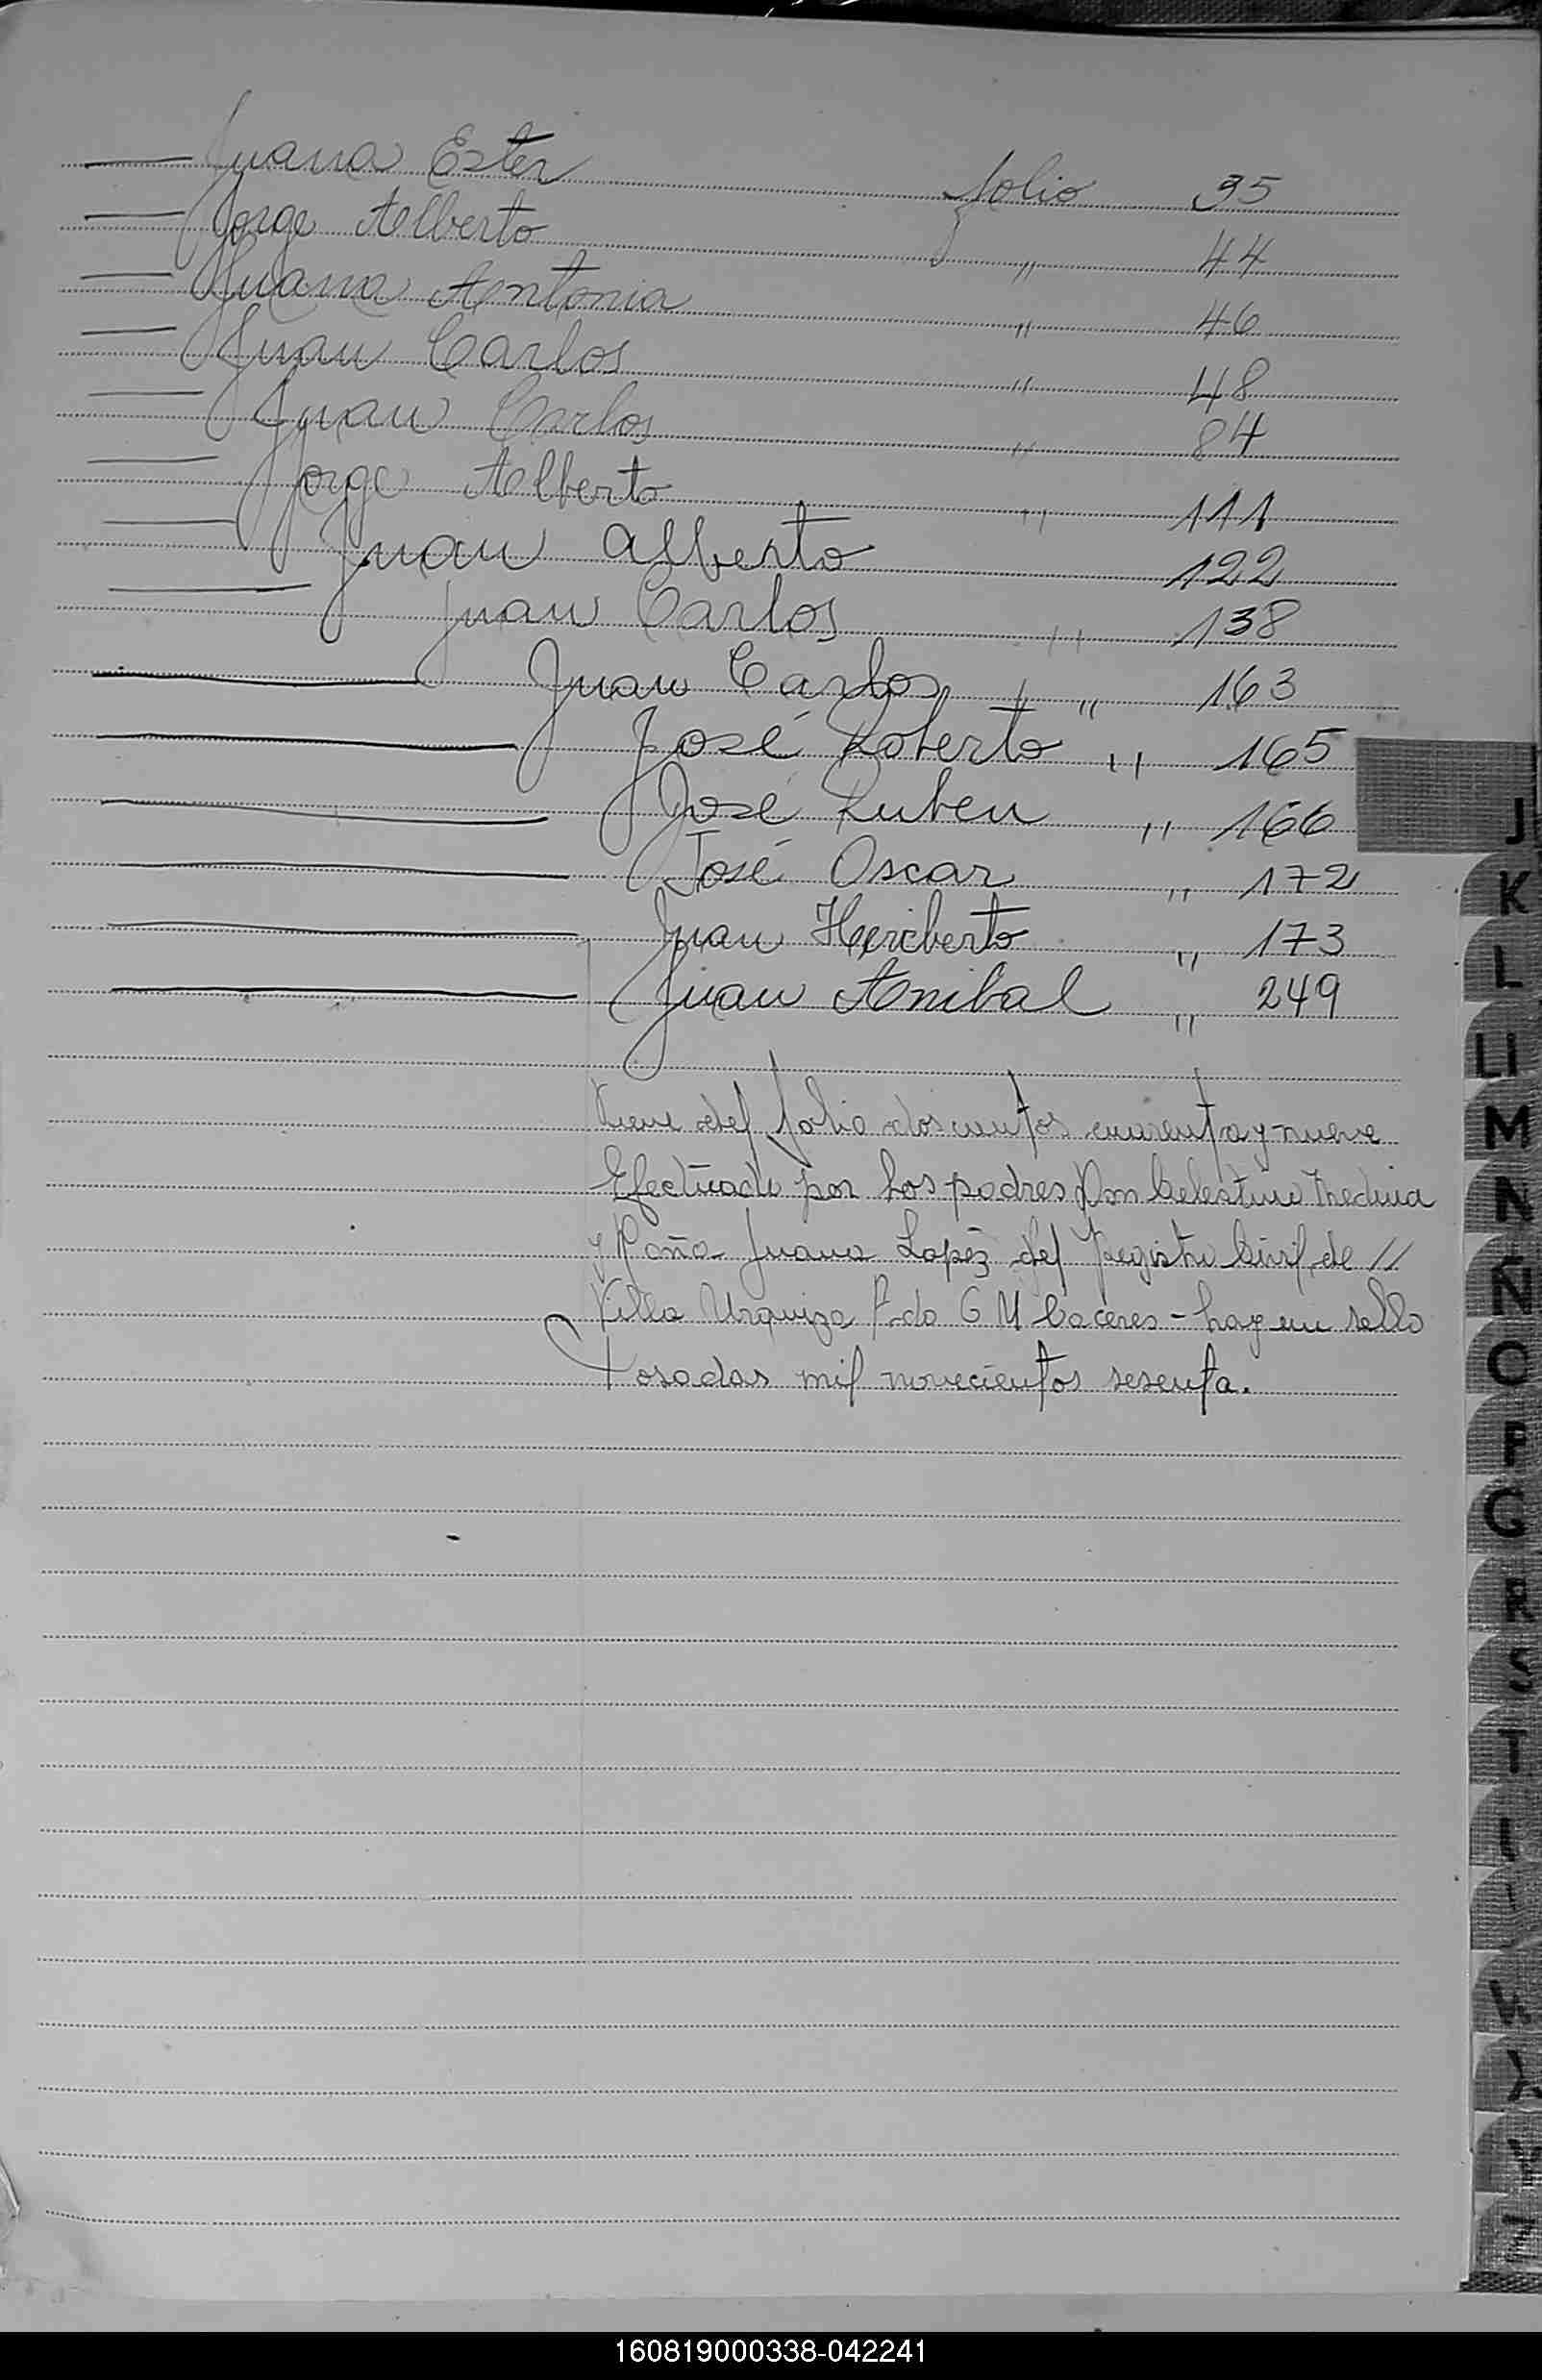 Juana Ester folio 35
Jorge Alberto " 44
Juana Antonia " 46
Juan Carlos " 48
Juan Carlos " 84
Jorge Alberto " 111
Juan Alberto 122
Juan Carlos " 138
Juan Carlos " 163
José Roberto " 165
José Ruben " 166
José Oscar " 172
Juan Heriberto " 173
Juan Anibal " 249
Viene del folio doscientos cuarenta y nueve
Efectuado por Los padres Don Celestino Medina
y Doña Juana Lopez del Registro Civil de //
Villa Urquiza F.do G M Caceres - hay un sello
Posadas mil novecientos sesenta.
J
K
L
Ll
M
N
Ñ
O
P
Q
R
S
T
160819000338-042241